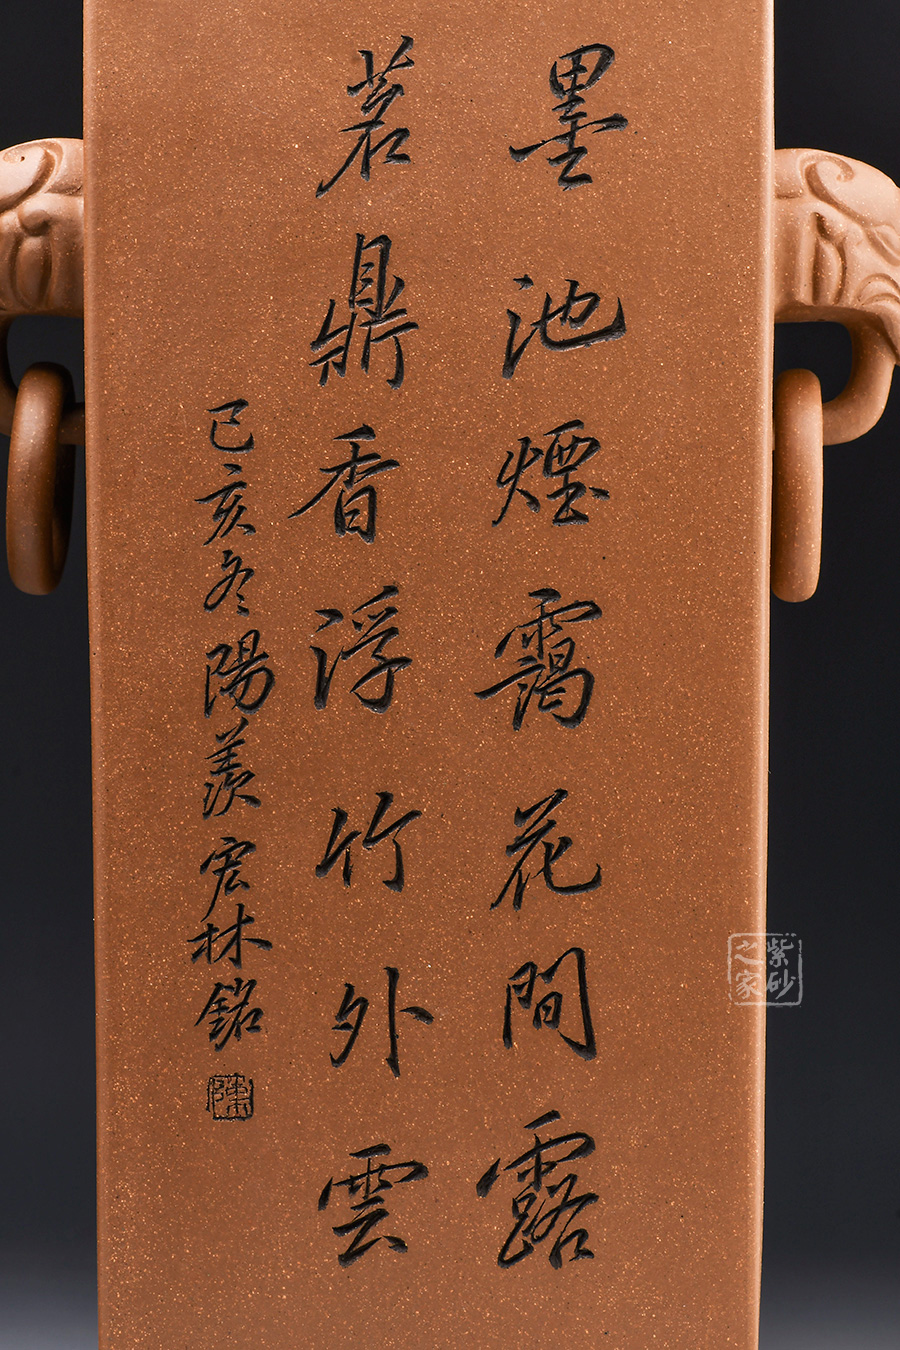 墨池煙靄花間露
茗鼎香浮竹外雲
己亥冬陽羨宏林銘
陳
紫砂之家